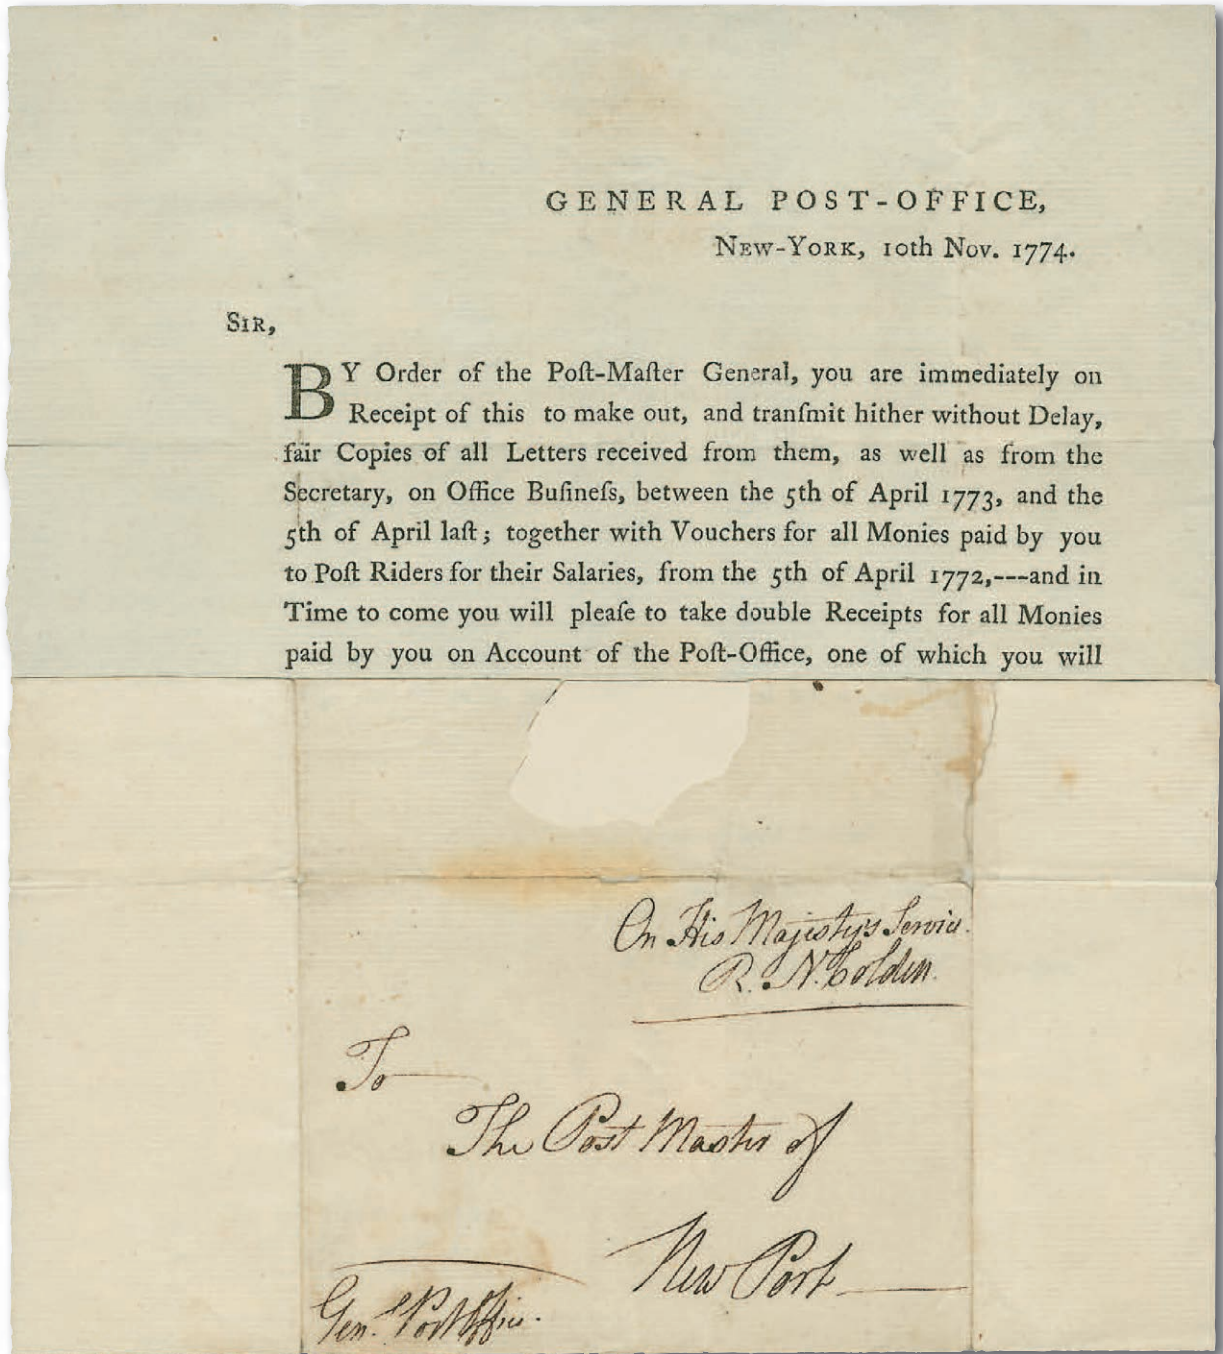 GENERAL POST-OFFICE,
NEW-YORK, 10th Nov. 1774.
SIR,
BY Order of the Poſt-Maſter General, you are immediately on
Receipt of this to make out, and tranſmit hither without Delay,
fair Copies of all Letters received from them, as well as from the
Secretary, on Office Buſineſs, between the 5th of April 1773, and the
5th of April laſt; together with Vouchers for all Monies paid by you
to Poſt Riders for their Salaries, from the 5th of April 1772,---and in
Time to come you will pleaſe to take double Receipts for all Monies
paid by you on Account of the Poſt-Office, one of which you will
On His Majesty's Service.
R. N. Colden.
To
The Post Master of
New Port
Gen.l Post Office.